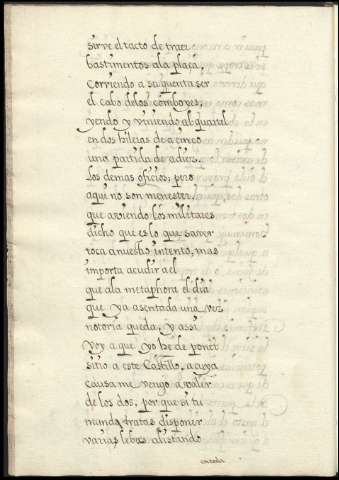 sirve el tacto de traer
bastimentos a la plaça,
corriendo a sa quenta ser
el cabo delos comboyes,
yendo y viniendo al quartel
en dos hileras de a cinco
una partida de a diez.
los demas oficios, pero
aqui no son menester,
que aviendo los militares
dicho que es lo que sa ver
toca a nuestro intento, mas
importa acudir a el
que a la metaphora el dia
que ya asentada una vez
notoria queda, y assi
voy a que yo he de poner
sitio a este Castillo, a cuya
causa me vengo a valer
de los dos, por que si tu
mando tratas disponer
varias lebas alistando